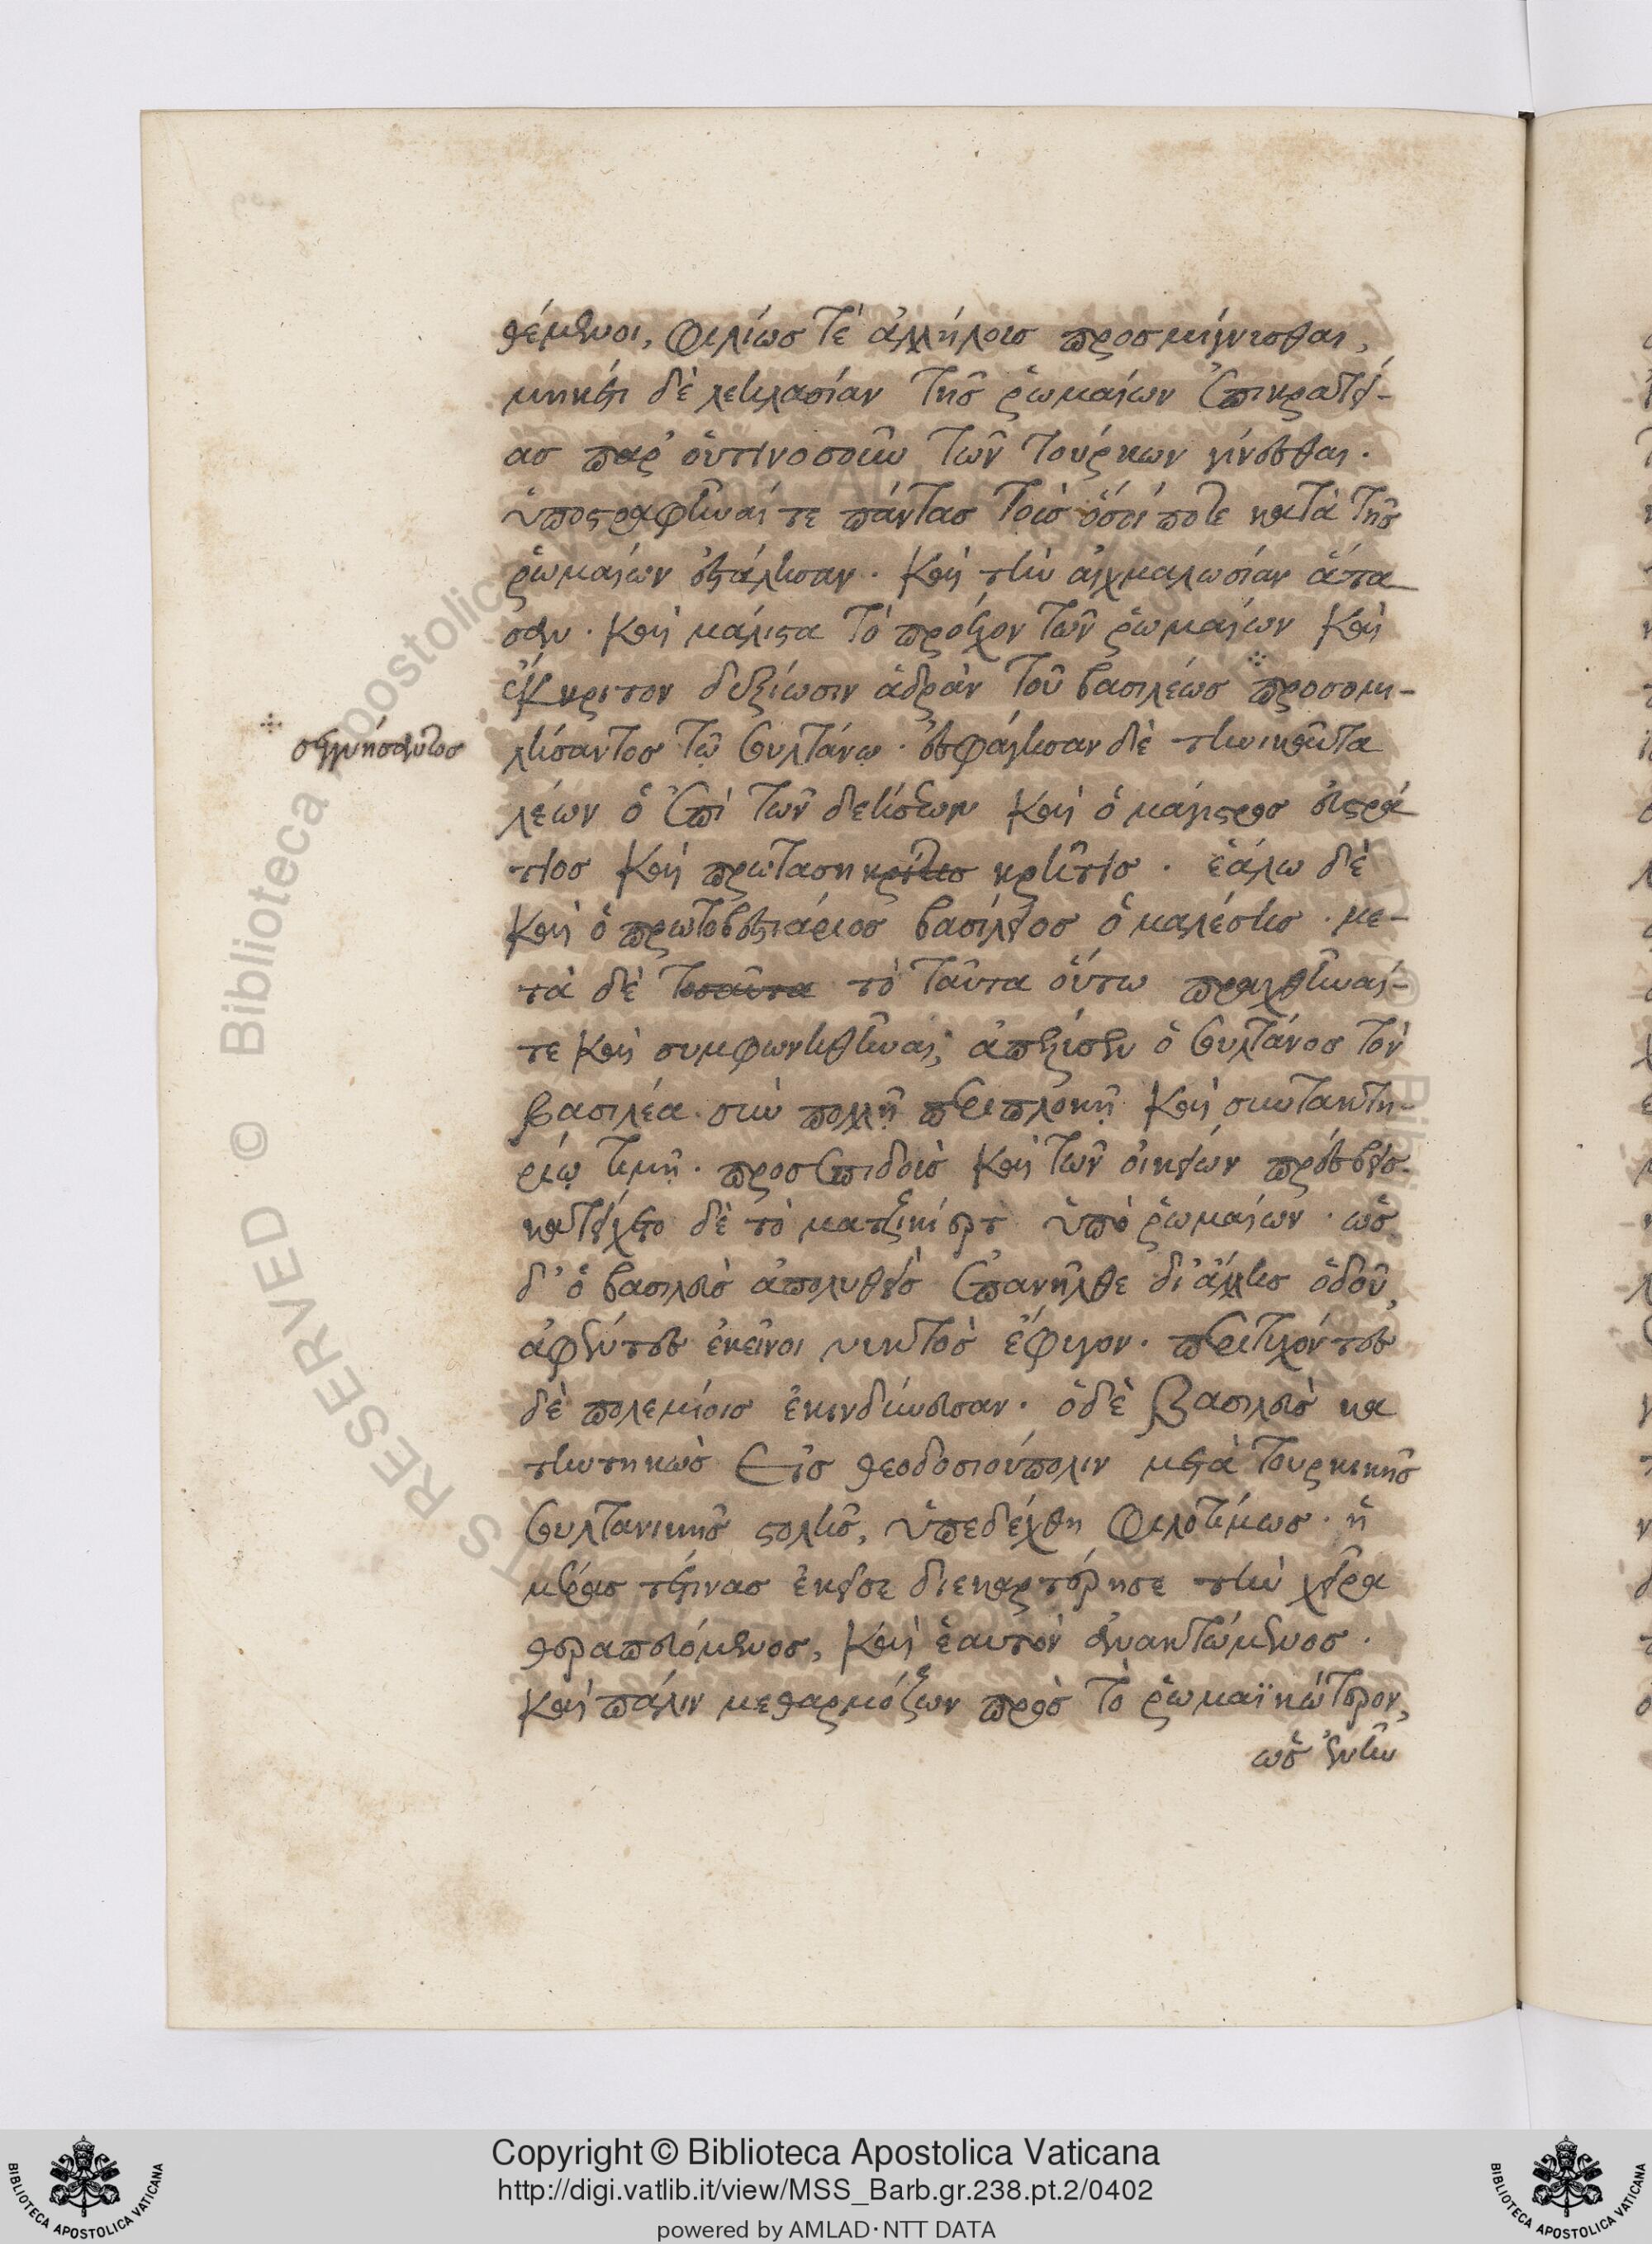 θέμενοι, φιλίως τὲ ἀλλήλοις προσμίγνισθαι,
μηκέτι δὲ λεηλασίαν τῆς ῥωμαίων ἐπικρατεί-
ας παρ' οὑτινοσοῦν τῶν τούρκων γίνεσθαι.
ὑποστραφῆναί τε πάντας τοὺς ὅσοι ποτε κατὰ τῆς
ῥωμαίων ἐστάλησαν. καὶ τὴν αἰχμαλωσίαν ἅπα
σαν. καὶ μάλιστα τὸ προέχον τῶν ῥωμαίων καὶ
ἔκκριτον δεξίωσιν ἁδρὰν τοῦ βασιλέως προσομι-
συγκινήσαντος
λήσαντος τῷ σουλτάνῳ. ἐσφάγησαν δὲ τηνικαῦτα
λέων ὁ ἐπὶ τῶν δεήσεων καὶ ὁ μάγιστρος εὐστρά
τιος καὶ πρωτασηκρίτης κρῆτις. ἑάλω δὲ
καὶ ὁ πρωτοβεστιάριος βασίλειος ὁ μαλέσης. με-
τὰ δὲ τοσαῦτα τὸ ταῦτα οὕτω πραχθῆναί-
τε καὶ συμφωνηθῆναι, ἀπέλυσεν ὁ σουλτάνος τὸν
βασιλέα. σὺν πολλῇ περιπλοκῇ καὶ συντακτη-
ρίῳ τιμῇ. προσεπιδοὺς καὶ τῶν οἰκείων πρέσβεις.
κατείχετο δὲ τὸ ματζικίερτ ὑπὸ ῥωμαίων. ὡς
δ' ὁ βασιλεὺς ἀπολυθεὶς ἐπανῆλθε δι' ἄλλης ὁδοῦ,
ἀφέντες ἐκεῖνοι νυκτὸς ἔφυγον. περιτυχόντες
δὲ πολεμίοις ἐκινδύνευσαν. ὁ δὲ βασιλεὺς κα
τηντηκὼς εἰς θεοδοσιούπολιν μετὰ τουρκικῆς
σουλτανικῆς στολῆς, ὑπεδέχθη φιλοτίμως. ἡ
μέρας τὲ τινας ἐκεῖσε διεκαρτέρησε τὴν χεῖρα
θεραπευόμενος, καὶ ἑαυτὸν ἀνακτώμενος.
καὶ πάλιν μεθαρμόζων πρὸς τὸ ῥωμαϊκώτερον,
ὡς ἐνῆν
Copyright © Biblioteca Apostolica Vaticana
http://digi.vatlib.it/view/MSS_Barb.gr.238.pt.2/0402
powered by AMLAD·NTT DATA
BIBLIOTECA APOSTOLICA VATICANA
BIBLIOTECA APOSTOLICA VATICANA